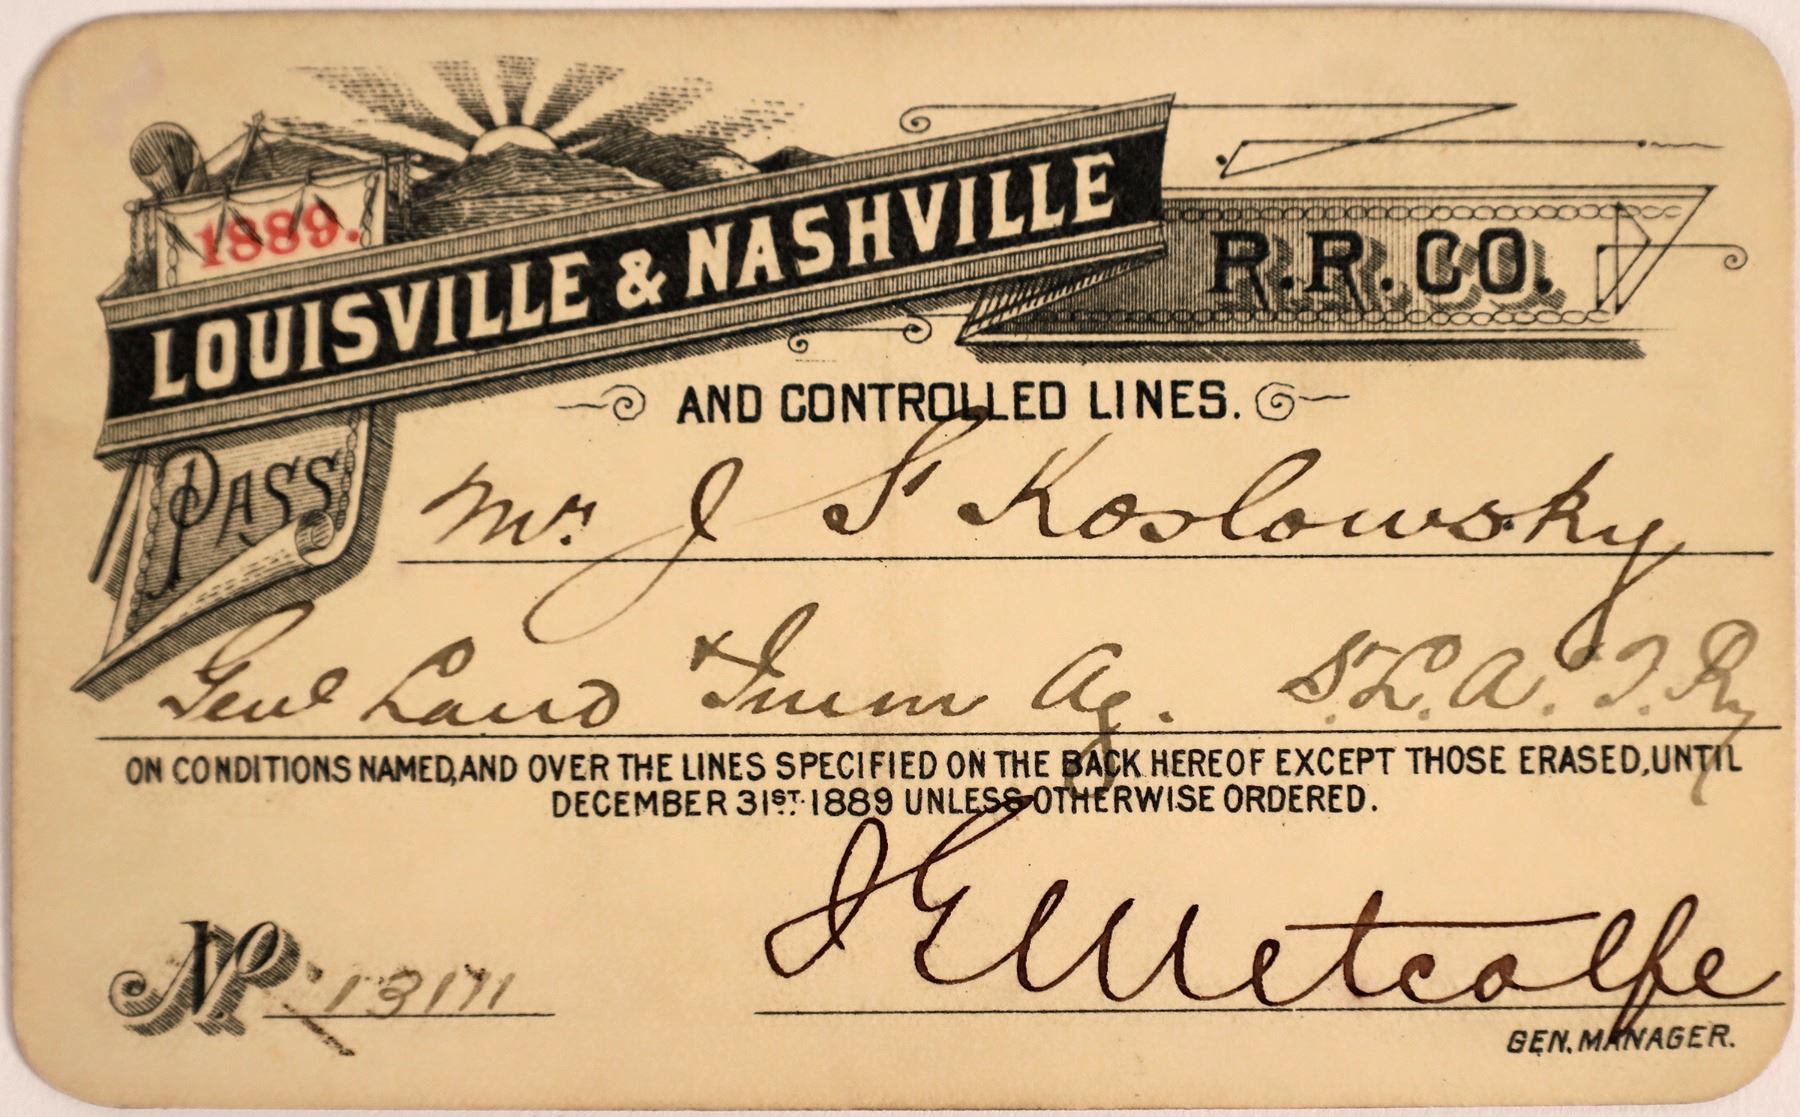 1889.
LOUISVILLE & NASHVILLE R.R.CO.
AND CONTROLLED LINES.
PASS Mr. J S Koslowsky
Genl Land & Imm Ag. S.L.A. & T. Ry
ON CONDITIONS NAMED, AND OVER THE LINES SPECIFIED ON THE BACK HEREOF EXCEPT THOSE ERASED, UNTIL
DECEMBER 31ST. 1889 UNLESS OTHERWISE ORDERED.
No 13171
J G Metcalfe
GEN. MANAGER.